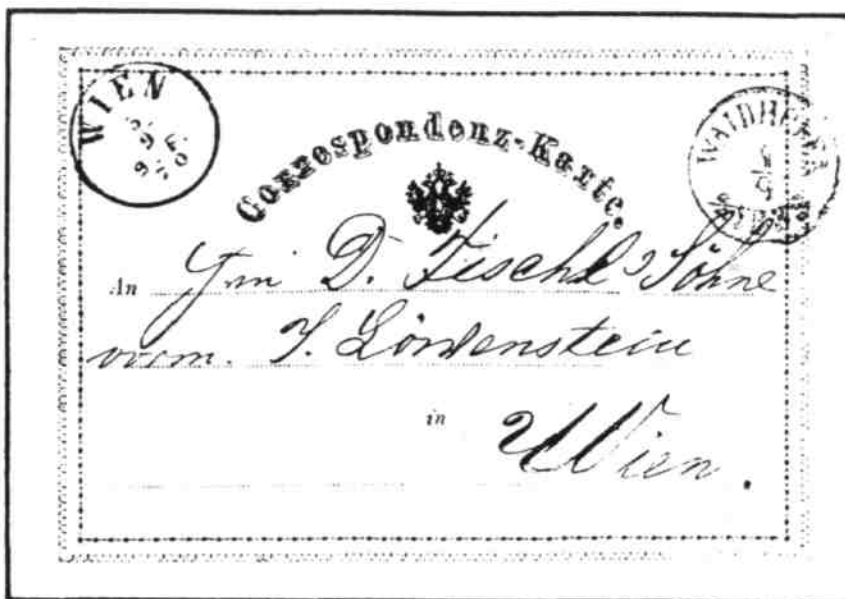 WIEN
9.
Correspondenz-Karte.
An D. Fischl's Söhne
vorm. J. Löwenstein
in Wien.